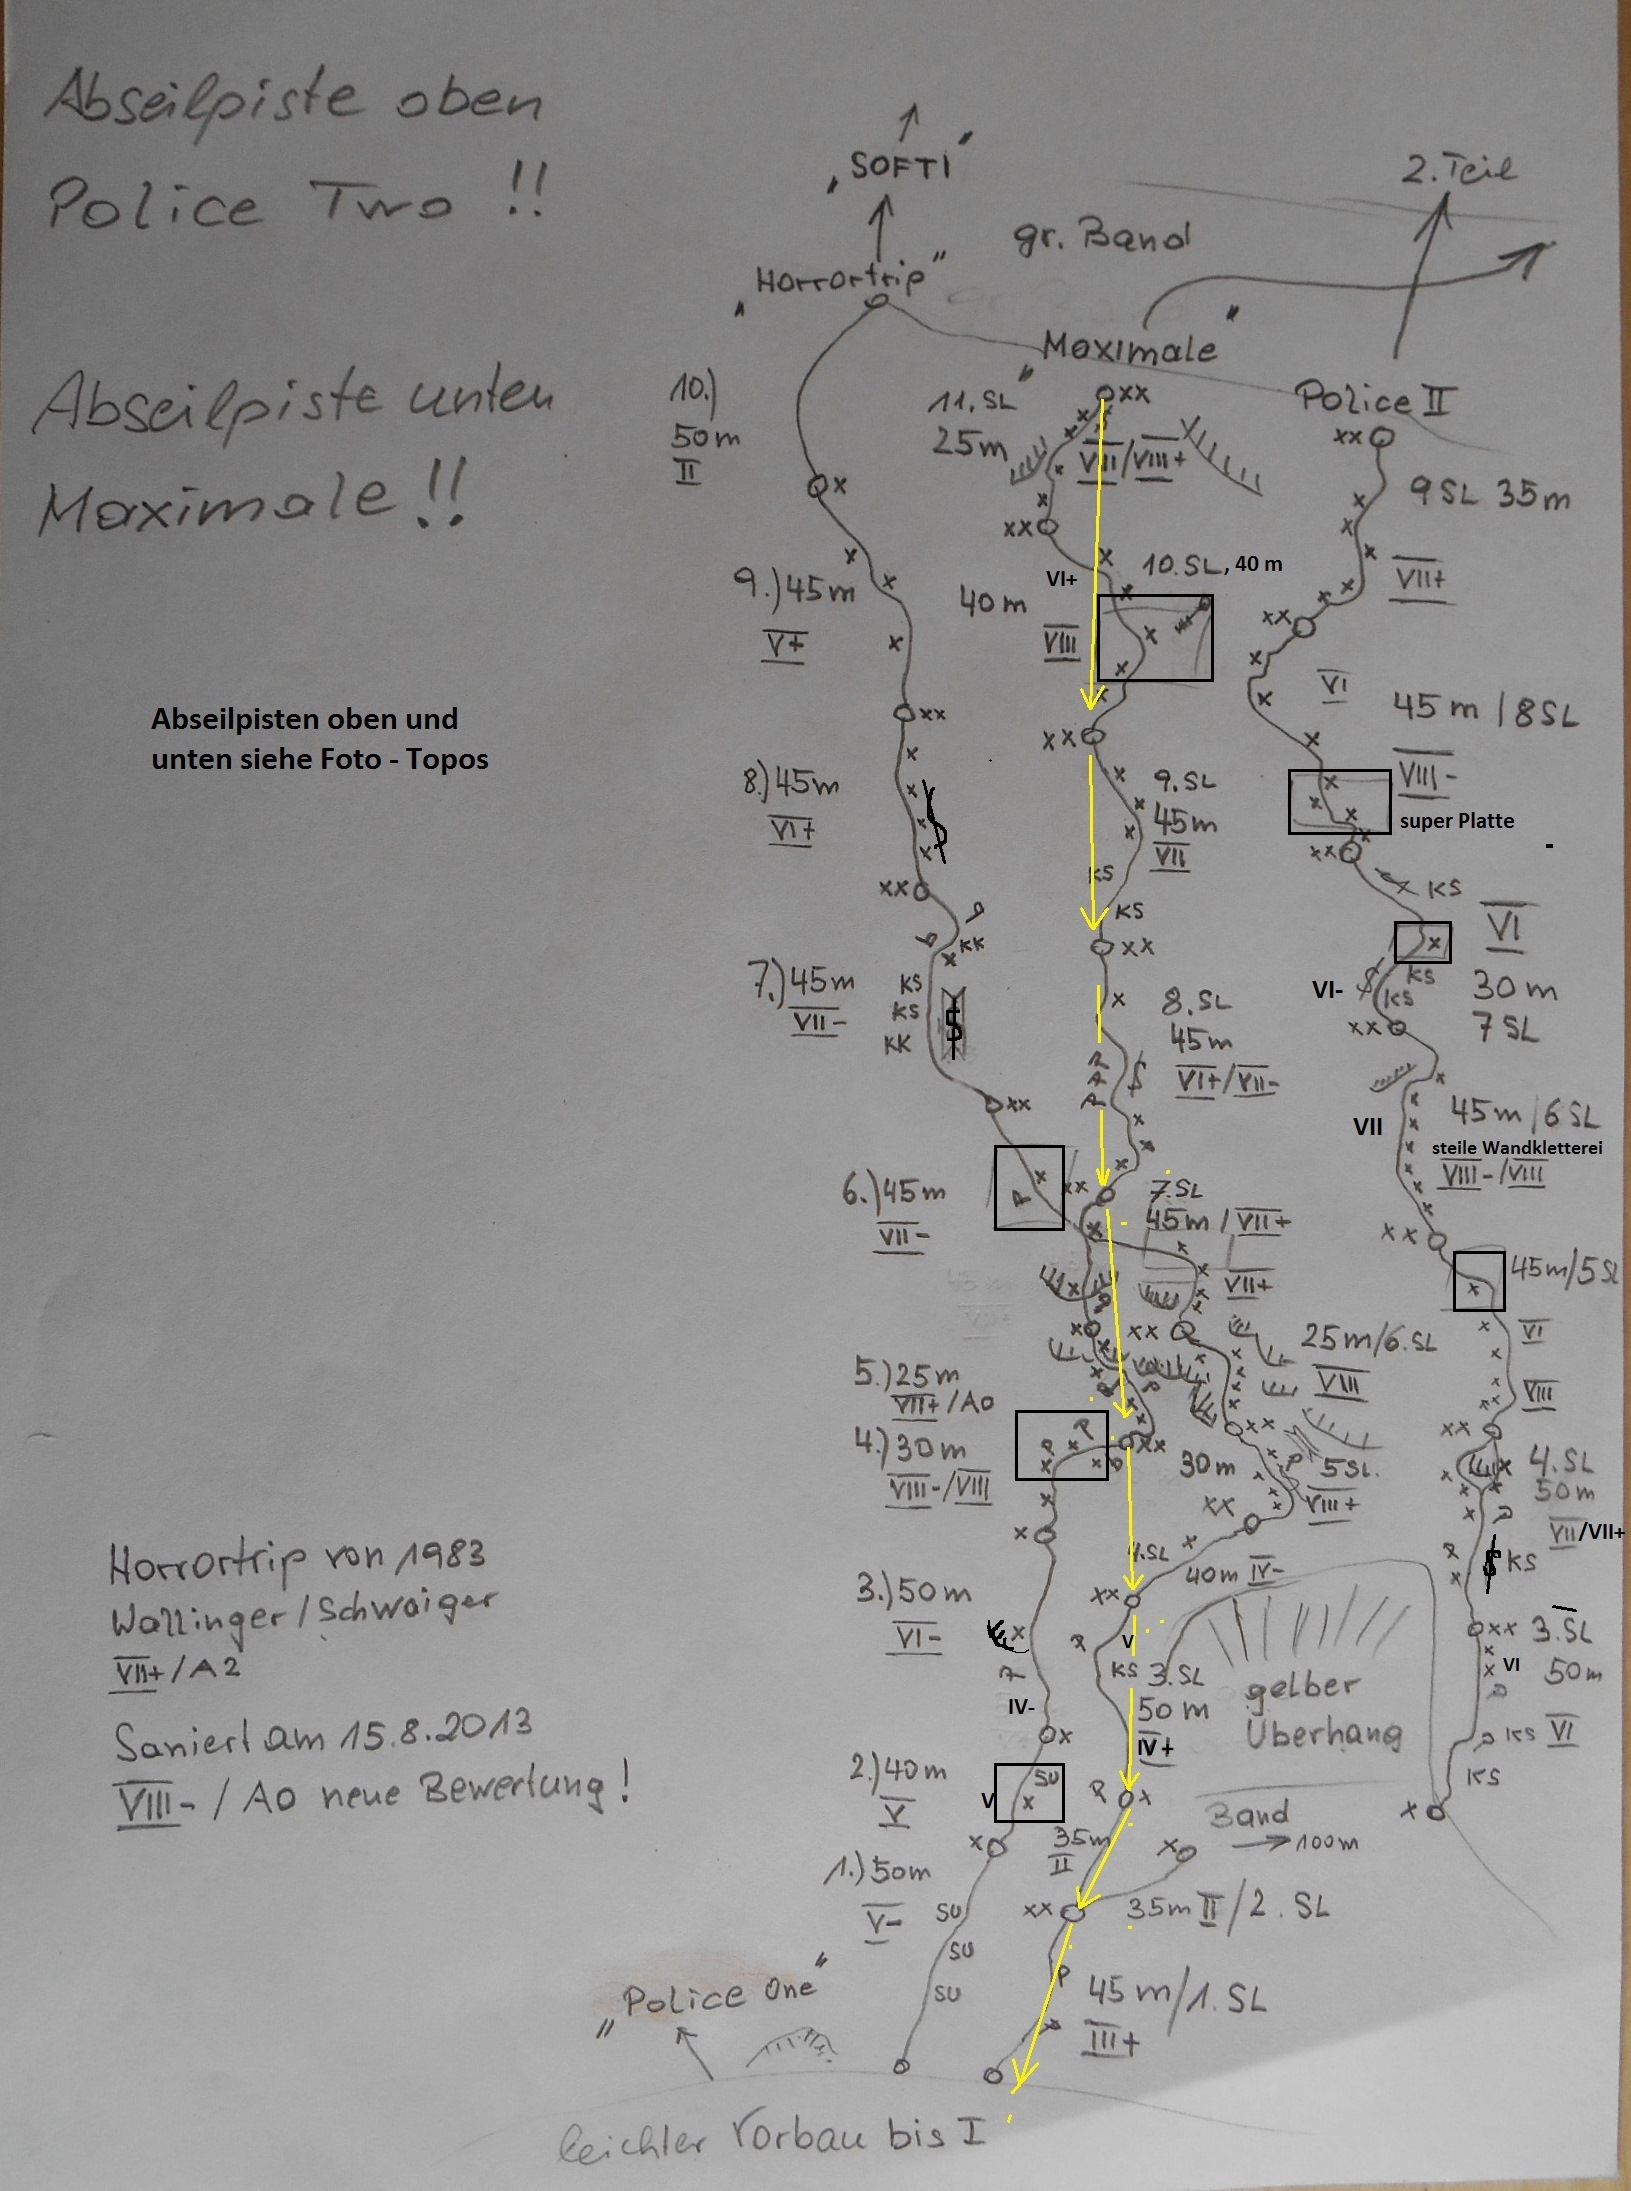 Abseilpiste oben
Police Two !!
Abseilpiste unten
Maximale !!
Abseilpisten oben und
unten siehe Foto - Topos
Horrortrip von 1983
Wallinger/Schwaiger
VII+/A2
Saniert am 15.8.2013
VIII-/A0 neue Bewertung!
„SOFTI"
„Horrortrip"
gr. Band
2. Teil
„Maximale"
Police II
10.)
50m
II
x
9.) 45m
V+
xx
8.) 45m
VI+
xx
KK
7.) 45m
VII-
KS
KS
KK
xx
6.) 45m
VII-
5.) 25m
VII+/A0
4.) 30m
VIII-/VIII
3.) 50m
VI-
IV-
2.) 40m
V
V
SU
1.) 50m
V-
SU
SU
SU
„Police One"
11. SL
25m
xx
VIII/VIII+
xx
VI+
10. SL, 40 m
40m
VIII
xx
9. SL
45m
VII
KS
KS
xx
8. SL
45m
VI+/VII-
xx
7. SL
45m/VII+
VII+
xx
25m/6. SL
VIII
xx
30m
5SL.
VIII+
xx
4.SL
40m IV-
xx
V
KS 3.SL
50 m
IV+
gelber
Überhang
Band
100m
35m
II
xx
35m II/2. SL
45 m/1. SL
III+
xx
9 SL 35m
VII+
xx
VI
45 m / 8SL
VIII-
super Platte
xx
KS
VI
KS
VI-
KS
30m
7 SL
xx
VII
45m/6 SL
steile Wandkletterei
VIII-/VIII
xx
45m/5SL
VI
VIII
xx
4. SL
50m
VII/VII+
KS
xx
3. SL
VI
50m
KS VI
KS
leichter Vorbau bis I